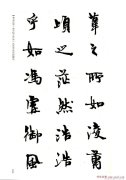 葦之所如凌萬
頃之茫然浩浩
乎如馮虛御風